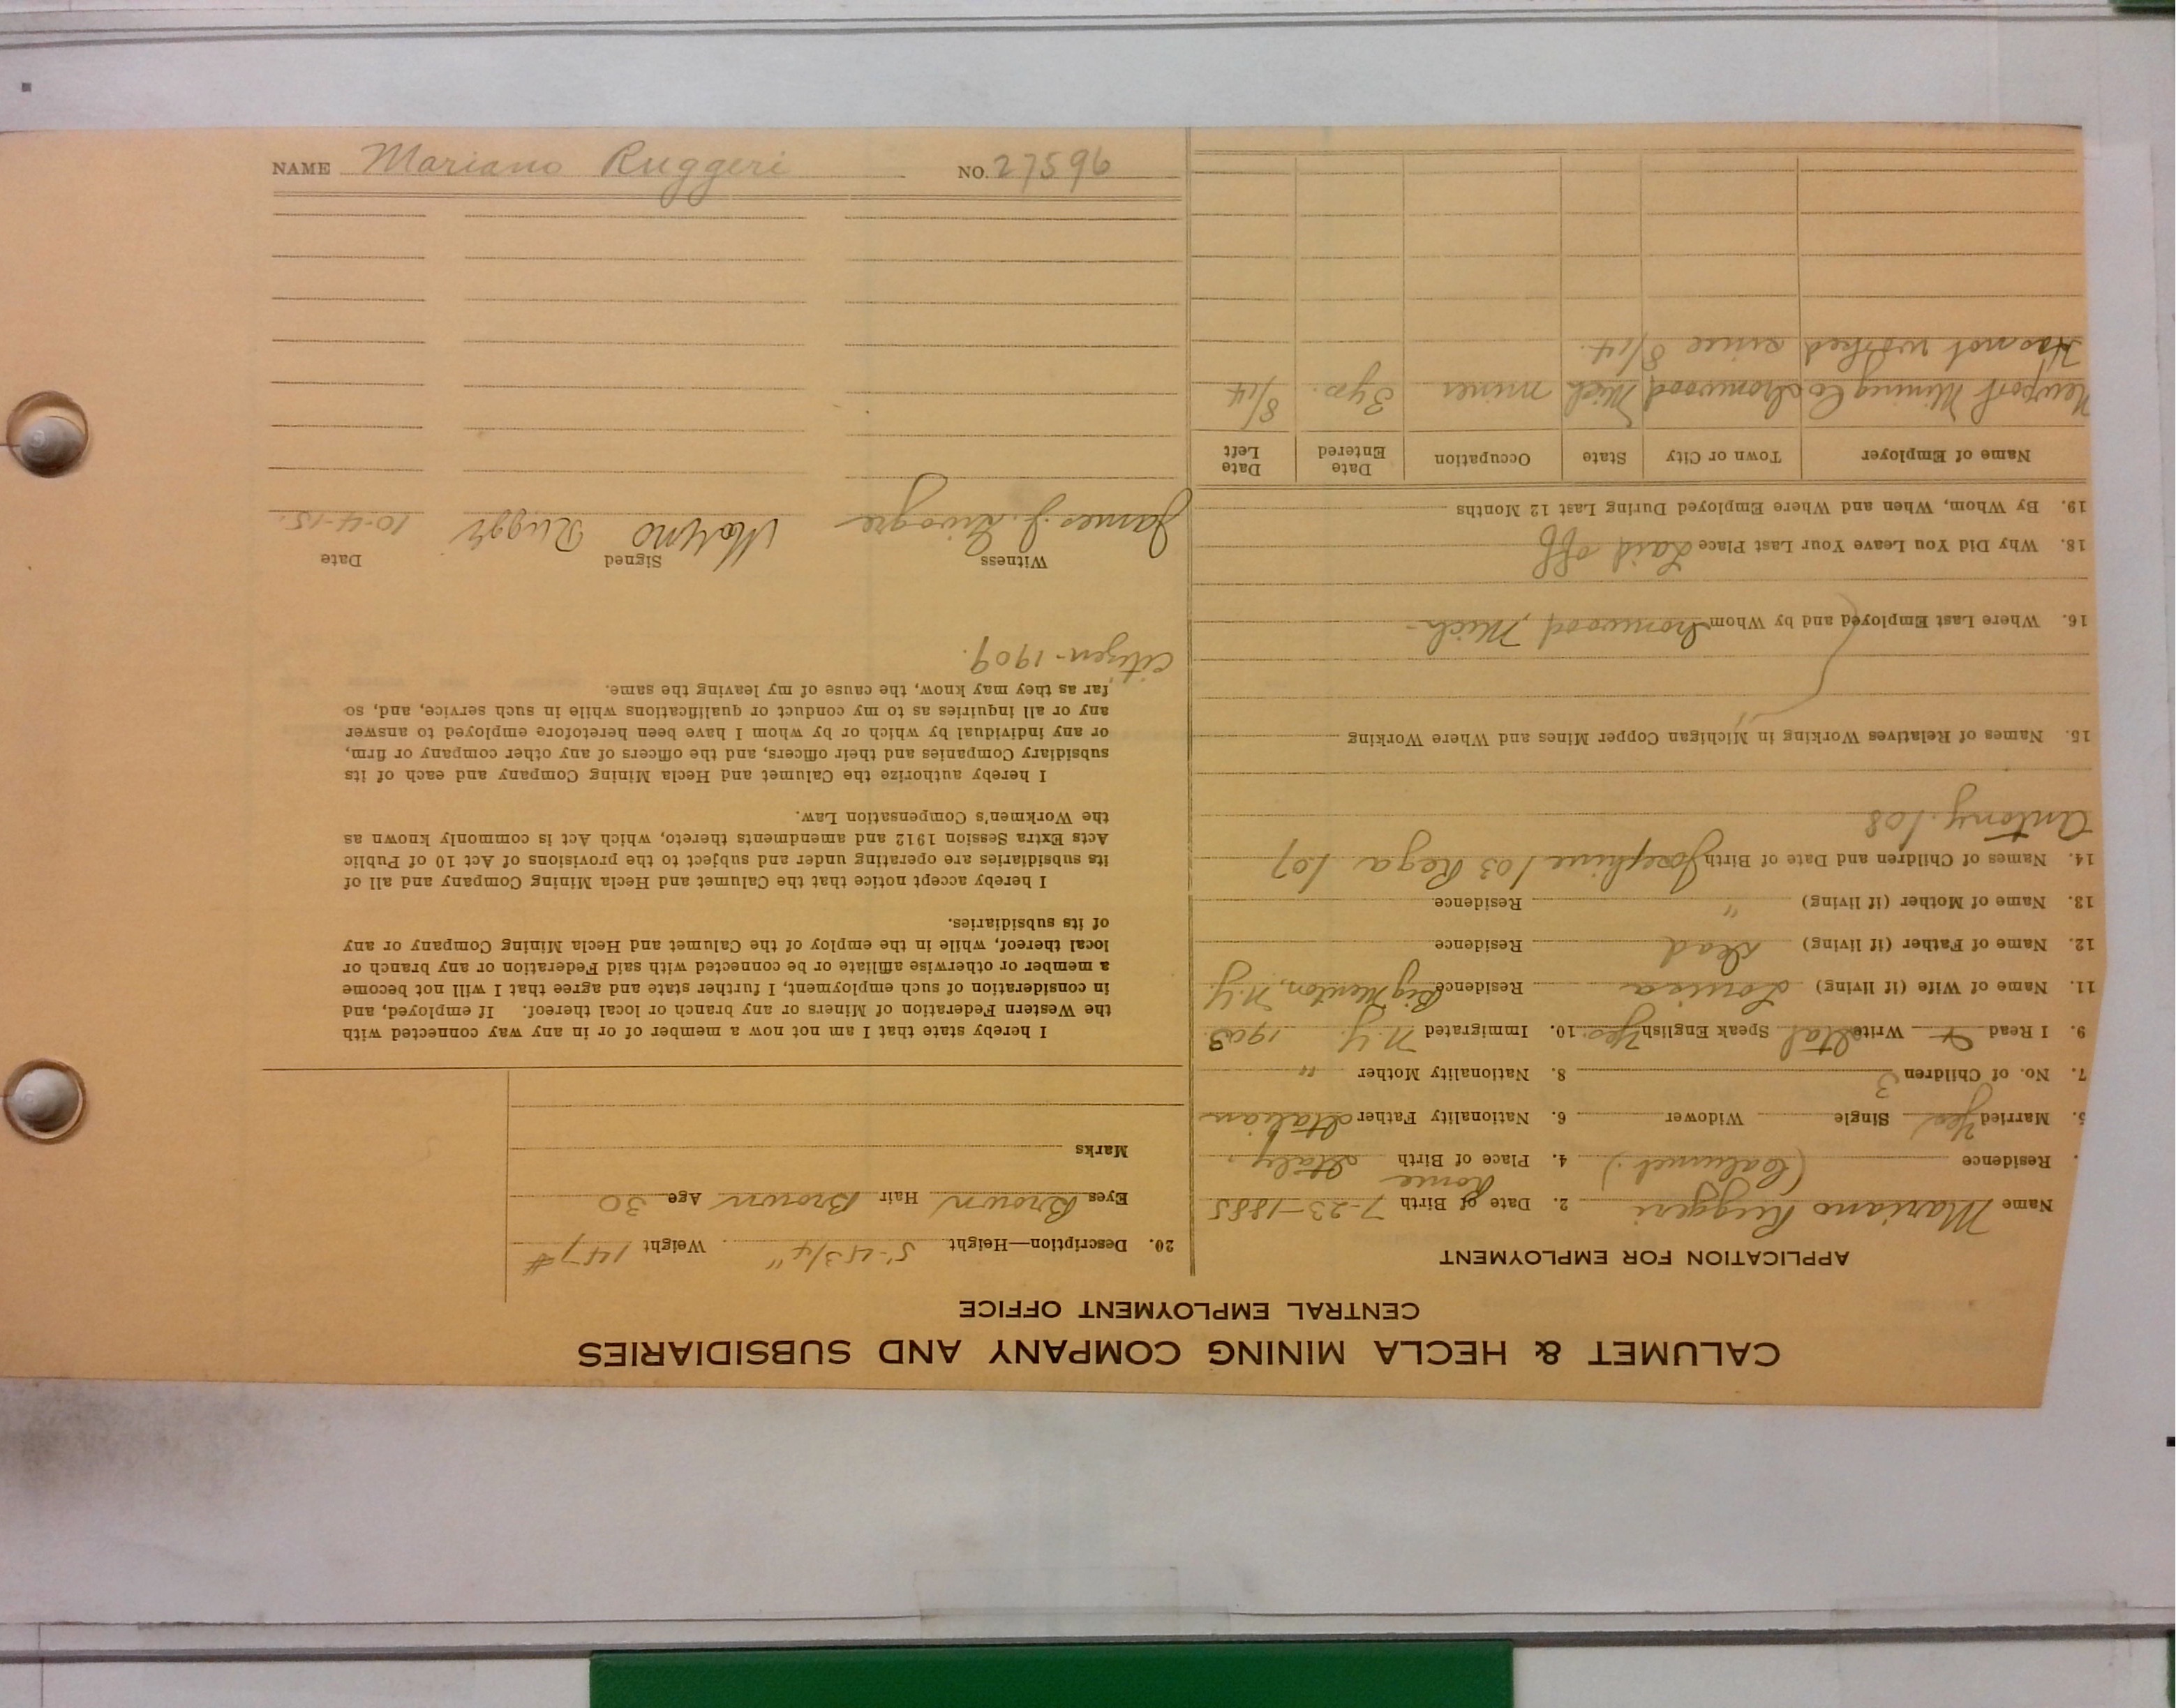 CALUMET & HECLA MINING COMPANY AND SUBSIDIARIES
CENTRAL EMPLOYMENT OFFICE
APPLICATION FOR EMPLOYMENT
Name Mariano Ruggeri 2. Date of Birth 7-23-1885
Residence (Calumet) 4. Place of Birth Rome Italy
Married Yes Single Widower 6. Nationality Father Italian
7. No. of Children 3 8. Nationality Mother "
9. I Read Write Ital Speak English Yes 10. Immigrated N.Y. 1903
11. Name of Wife (if living) Louisa Residence Big N.Y.
12. Name of Father (if living) Dead Residence
13. Name of Mother (if living) " Residence
14. Names of Children and Date of Birth Josephine / 03 Rega / 07
Antony / 08
15. Names of Relatives Working in Michigan Copper Mines and Where Working
16. Where Last Employed and by Whom Ironwood, Mich-
18. Why Did You Leave Your Last Place Laid off
19. By Whom, When and Where Employed During Last 12 Months
Name of Employer Town or City State Occupation Date Entered Date Left
Newport Mining Co Ironwood Mich miner 3 yrs. 8/14
Has not worked since 8/14.
20. Description—Height 5'-4 3/4" Weight 147#
Eyes Brown Hair Brown Age 30
Marks
I hereby state that I am not now a member of or in any way connected with
the Western Federation of Miners or any branch or local thereof. If employed, and
in consideration of such employment, I further state and agree that I will not become
a member or otherwise affiliate or be connected with said Federation or any branch or
local thereof, while in the employ of the Calumet and Hecla Mining Company or any
of its subsidiaries.
I hereby accept notice that the Calumet and Hecla Mining Company and all of
its subsidiaries are operating under and subject to the provisions of Act 10 of Public
Acts Extra Session 1912 and amendments thereto, which Act is commonly known as
the Workmen's Compensation Law.
I hereby authorize the Calumet and Hecla Mining Company and each of its
subsidiary Companies and their officers, and the officers of any other company or firm,
or any individual by which or by whom I have been heretofore employed to answer
any or all inquiries as to my conduct or qualifications while in such service, and, so
far as they may know, the cause of my leaving the same.
Citizen-1909.
Witness Signed Date
James J. 10-4-15.
NAME Mariano Ruggeri NO. 27596